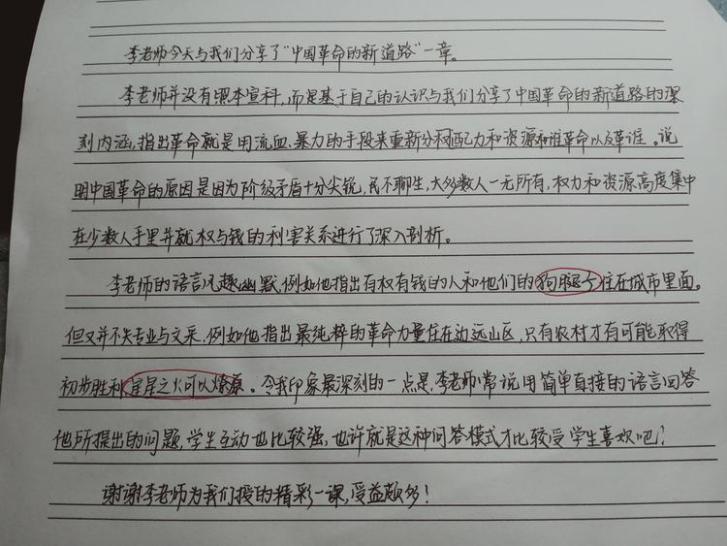 李老师今天与我们分享了“中国革命的新道路”一章。
李老师并没有照本宣科,而是基于自己的认识与我们分享了中国革命的新道路的深
刻内涵,指出革命就是用流血、暴力的手段来重新分配权力和资源和谁革命以及革谁。说
明中国革命的原因是因为阶级矛盾十分尖锐,民不聊生,大多数人一无所有,权力和资源高度集中
在少数人手里并就权与钱的利害关系进行了深入剖析。
李老师的语言风趣幽默,例如他指出有权有钱的人和他们的狗腿子住在城市里面。
但又并不失专业与文采,例如他指出最纯粹的革命力量住在边远山区,只有农村才有可能取得
初步胜利星星之火可以燎原。令我印象最深刻的一点是,李老师常说用简单直接的语言回答
他所提出的问题,学生互动也比较强,也许就是这种问答模式才比较受学生喜欢吧?
谢谢李老师为我们授的精彩一课,受益颇多!